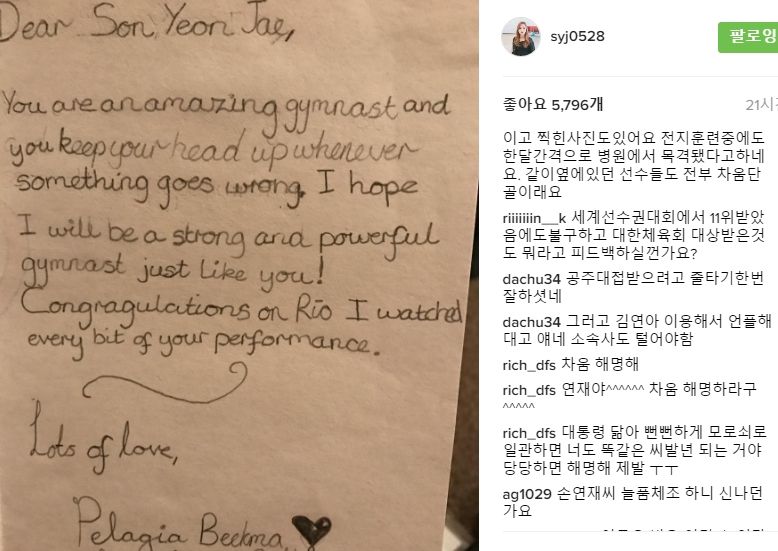 Dear Son Yeon Jae,
You are an amazing gymnast and
you keep your head up whenever
something goes wrong. I hope
I will be a strong and powerful
gymnast just like you!
Congragulations on Rio I watched
every bit of your performance.
Lots of love,
Pelagia Beekma
syj0528
팔로잉
좋아요 5,796개
21시간
이고 찍힌사진도있어요 전지훈련중에도
한달간격으로 병원에서 목격됐다고하네
요. 같이옆에있던 선수들도 전부 차움단
골이래요
riiiiiiin__k 세계선수권대회에서 11위받았
음에도불구하고 대한체육회 대상받은것
도 뭐라고 피드백하실껀가요?
dachu34 공주대접받으려고 줄타기한번
잘하셧네
dachu34 그러고 김연아 이용해서 언플해
대고 얘네 소속사도 털어야함
rich_dfs 차움 해명해
rich_dfs 연재야^^^^^^ 차움 해명하라구
^^^^^
rich_dfs 대통령 닮아 뻔뻔하게 모로쇠로
일관하면 너도 똑같은 씨발년 되는 거야
당당하면 해명해 제발 ㅜㅜ
ag1029 손연재씨 늘품체조 하니 신나던
가요